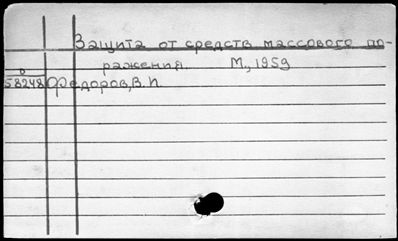 Защита от средств массового по-
ражения. М., 1959
58248 Федоров, В. И.